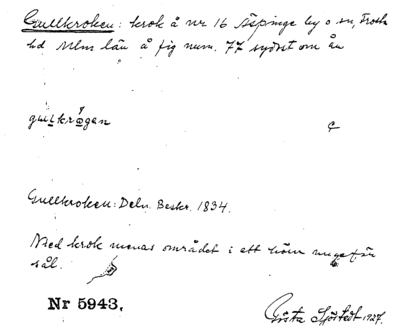 Gullkroken: krok å nr 16 Äspinge by o sn, Frosta
hd Mlm län å fig num. 77 sydost om ån
gullkrogan
c
Gullkroken: Deln. Beskr. 1834.
Med krok menas området i ett hörn ungefär
sål.
Nr 5943.
Gösta Sjöstedt 1927.